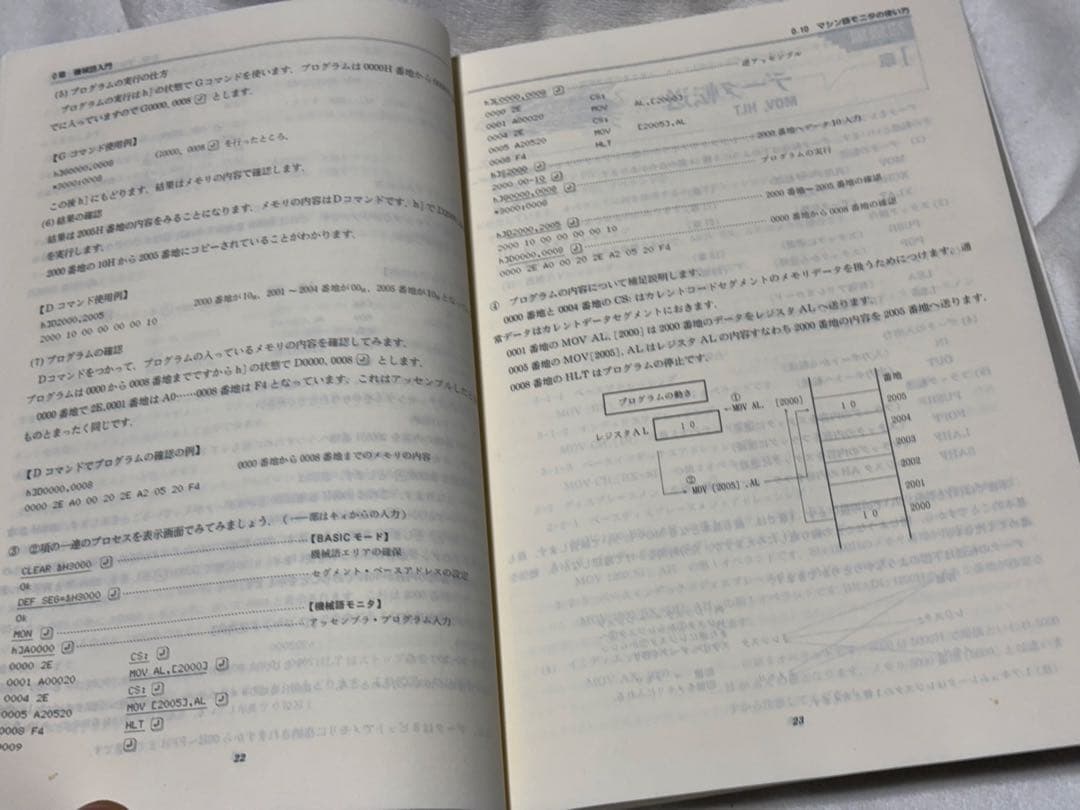 0章 機械語入門
(5) プログラムの実行の仕方
プログラムの実行はh]の状態でGコマンドを使います．プログラムは0000H番地から000
でに入っていますのでG0000，0008 ↵ とします．
【Gコマンド使用例】
h]G0000,0008 G0000，0008 ↵ を行ったところ．
*3000:0008
この後h]にもどります．結果はメモリの内容で確認します．
(6) 結果の確認
結果は2005H番地の内容をみることになります．メモリの内容はDコマンドです．h]でD2000,
を実行します．
2000番地の10Hから2005番地にコピーされていることがわかります．
【Dコマンド使用例】
2000番地が10H，2001～2004番地が00H，2005番地が10Hとなっ
h]D2000,2005
2000 10 00 00 00 00 10
(7) プログラムの確認
Dコマンドをつかって，プログラムの入っているメモリの内容を確認してみます．
プログラムは0000から0008番地までですからh]の状態でD0000，0008 ↵ とします．
0000番地で2E,0001番地はA0……0008番地はF4となっています．これはアッセンブルした
ものとまったく同じです．
【Dコマンドでプログラムの確認の例】
0000番地から0008番地までのメモリの内容
h]D0000,0008
0000 2E A0 00 20 2E A2 05 20 F4
③ ②項の一連のプロセスを表示画面でみてみましょう．（──部はキィからの入力）
【BASICモード】
CLEAR &H3000 ↵ 機械語エリアの確保
Ok
DEF SEG=&H3000 ↵ セグメント・ベースアドレスの設定
Ok
【機械語モニタ】
MON ↵ アッセンブラ・プログラム入力
h]A0000 ↵
0000 2E CS: ↵
0001 A00020 MOV AL,[2000] ↵
0004 2E CS: ↵
0005 A20520 MOV [2005],AL ↵
0008 F4 HLT ↵
0009 ↵
22
0.10 マシン語モニタの使い方
逆アッセンブル
h]L0000,0008 ↵
0000 2E CS:
0001 A00020 MOV AL,[2000]
0004 2E CS:
0005 A20520 MOV [2005],AL
0008 F4 HLT
h]S2000 ↵ 2000番地へデータ10入力
2000 00-10 ↵
h]G0000,0008 ↵ プログラムの実行
*3000:0008
h]D2000,2005 ↵ 2000番地～2005番地の確認
2000 10 00 00 00 00 10
h]D0000,0008 ↵ 0000番地から0008番地の確認
0000 2E A0 00 20 2E A2 05 20 F4
④ プログラムの内容について補足説明します．
0000番地と0004番地のCS:はカレントコードセグメントのメモリデータを扱うためにつけます．通
常データはカレントデータセグメントにおきます．
0001番地のMOV AL，[2000]は2000番地のデータをレジスタALへ送ります．
0005番地のMOV[2005]，ALはレジスタALの内容すなわち2000番地の内容を2005番地へ送ります．
0008番地のHLTはプログラムの停止です．
プログラムの動き
レジスタAL
10
①
MOV AL, [2000]
②
MOV [2005],AL
番地
10 2005
2004
2003
2002
2001
10 2000
23